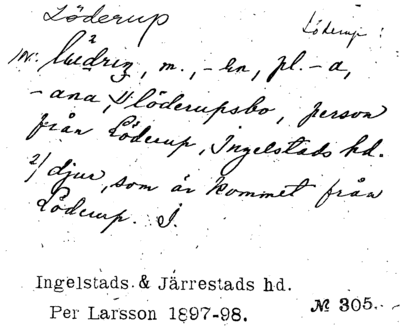 Löderup
Löderup:
luđriŋ, m., -en, pl. -a,
-ana, 1) löderupsbo, person
från Löderup, Ingelstads hd.
2) djur, som är kommet från
Löderup. I.
Ingelstads & Järrestads hd.
Per Larsson 1897-98.
№ 305.